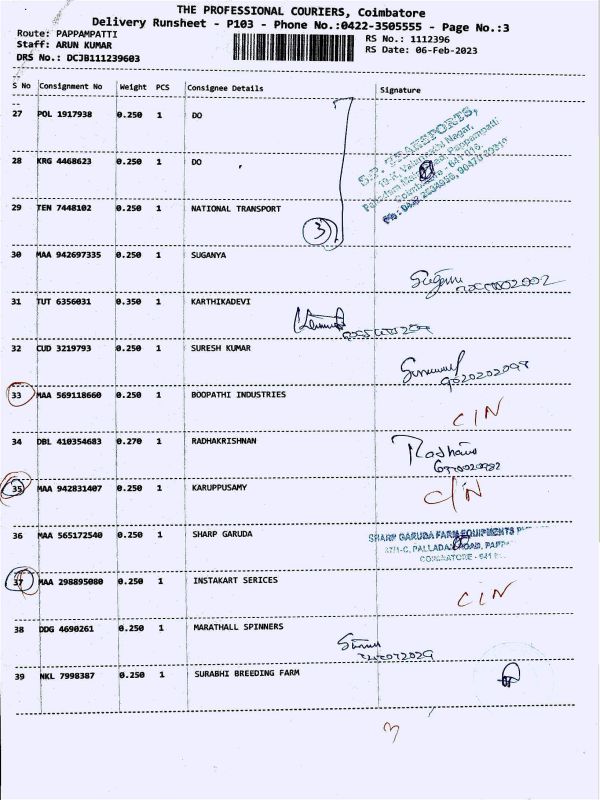 THE PROFESSIONAL COURIERS, Coimbatore
Delivery Runsheet - P103 - Phone No.:0422-3505555 - Page No.:3
Route: PAPPAMPATTI
Staff: ARUN KUMAR
DRS No.: DCJB111239603
RS No.: 1112396
RS Date: 06-Feb-2023
S No Consignment No Weight PCS Consignee Details Signature
27 POL 1917938 0.250 1 DO
28 KRG 4468623 0.250 1 DO
S.P. TRANSPORTS,
29 TEN 7448102 0.250 1 NATIONAL TRANSPORT
3
30 MAA 942697335 0.250 1 SUGANYA
31 TUT 6356031 0.350 1 KARTHIKADEVI
32 CUD 3219793 0.250 1 SURESH KUMAR
33 MAA 569118660 0.250 1 BOOPATHI INDUSTRIES C/N
34 DBL 410354683 0.270 1 RADHAKRISHNAN
35 MAA 942831407 0.250 1 KARUPPUSAMY C/N
36 MAA 565172540 0.250 1 SHARP GARUDA
SHARP GARUDA FARM EQUIPMENTS
COIMBATORE - 641
37 MAA 298895080 0.250 1 INSTAKART SERICES C/N
38 DDG 4690261 0.250 1 MARATHALL SPINNERS
39 NKL 7998387 0.250 1 SURABHI BREEDING FARM
3